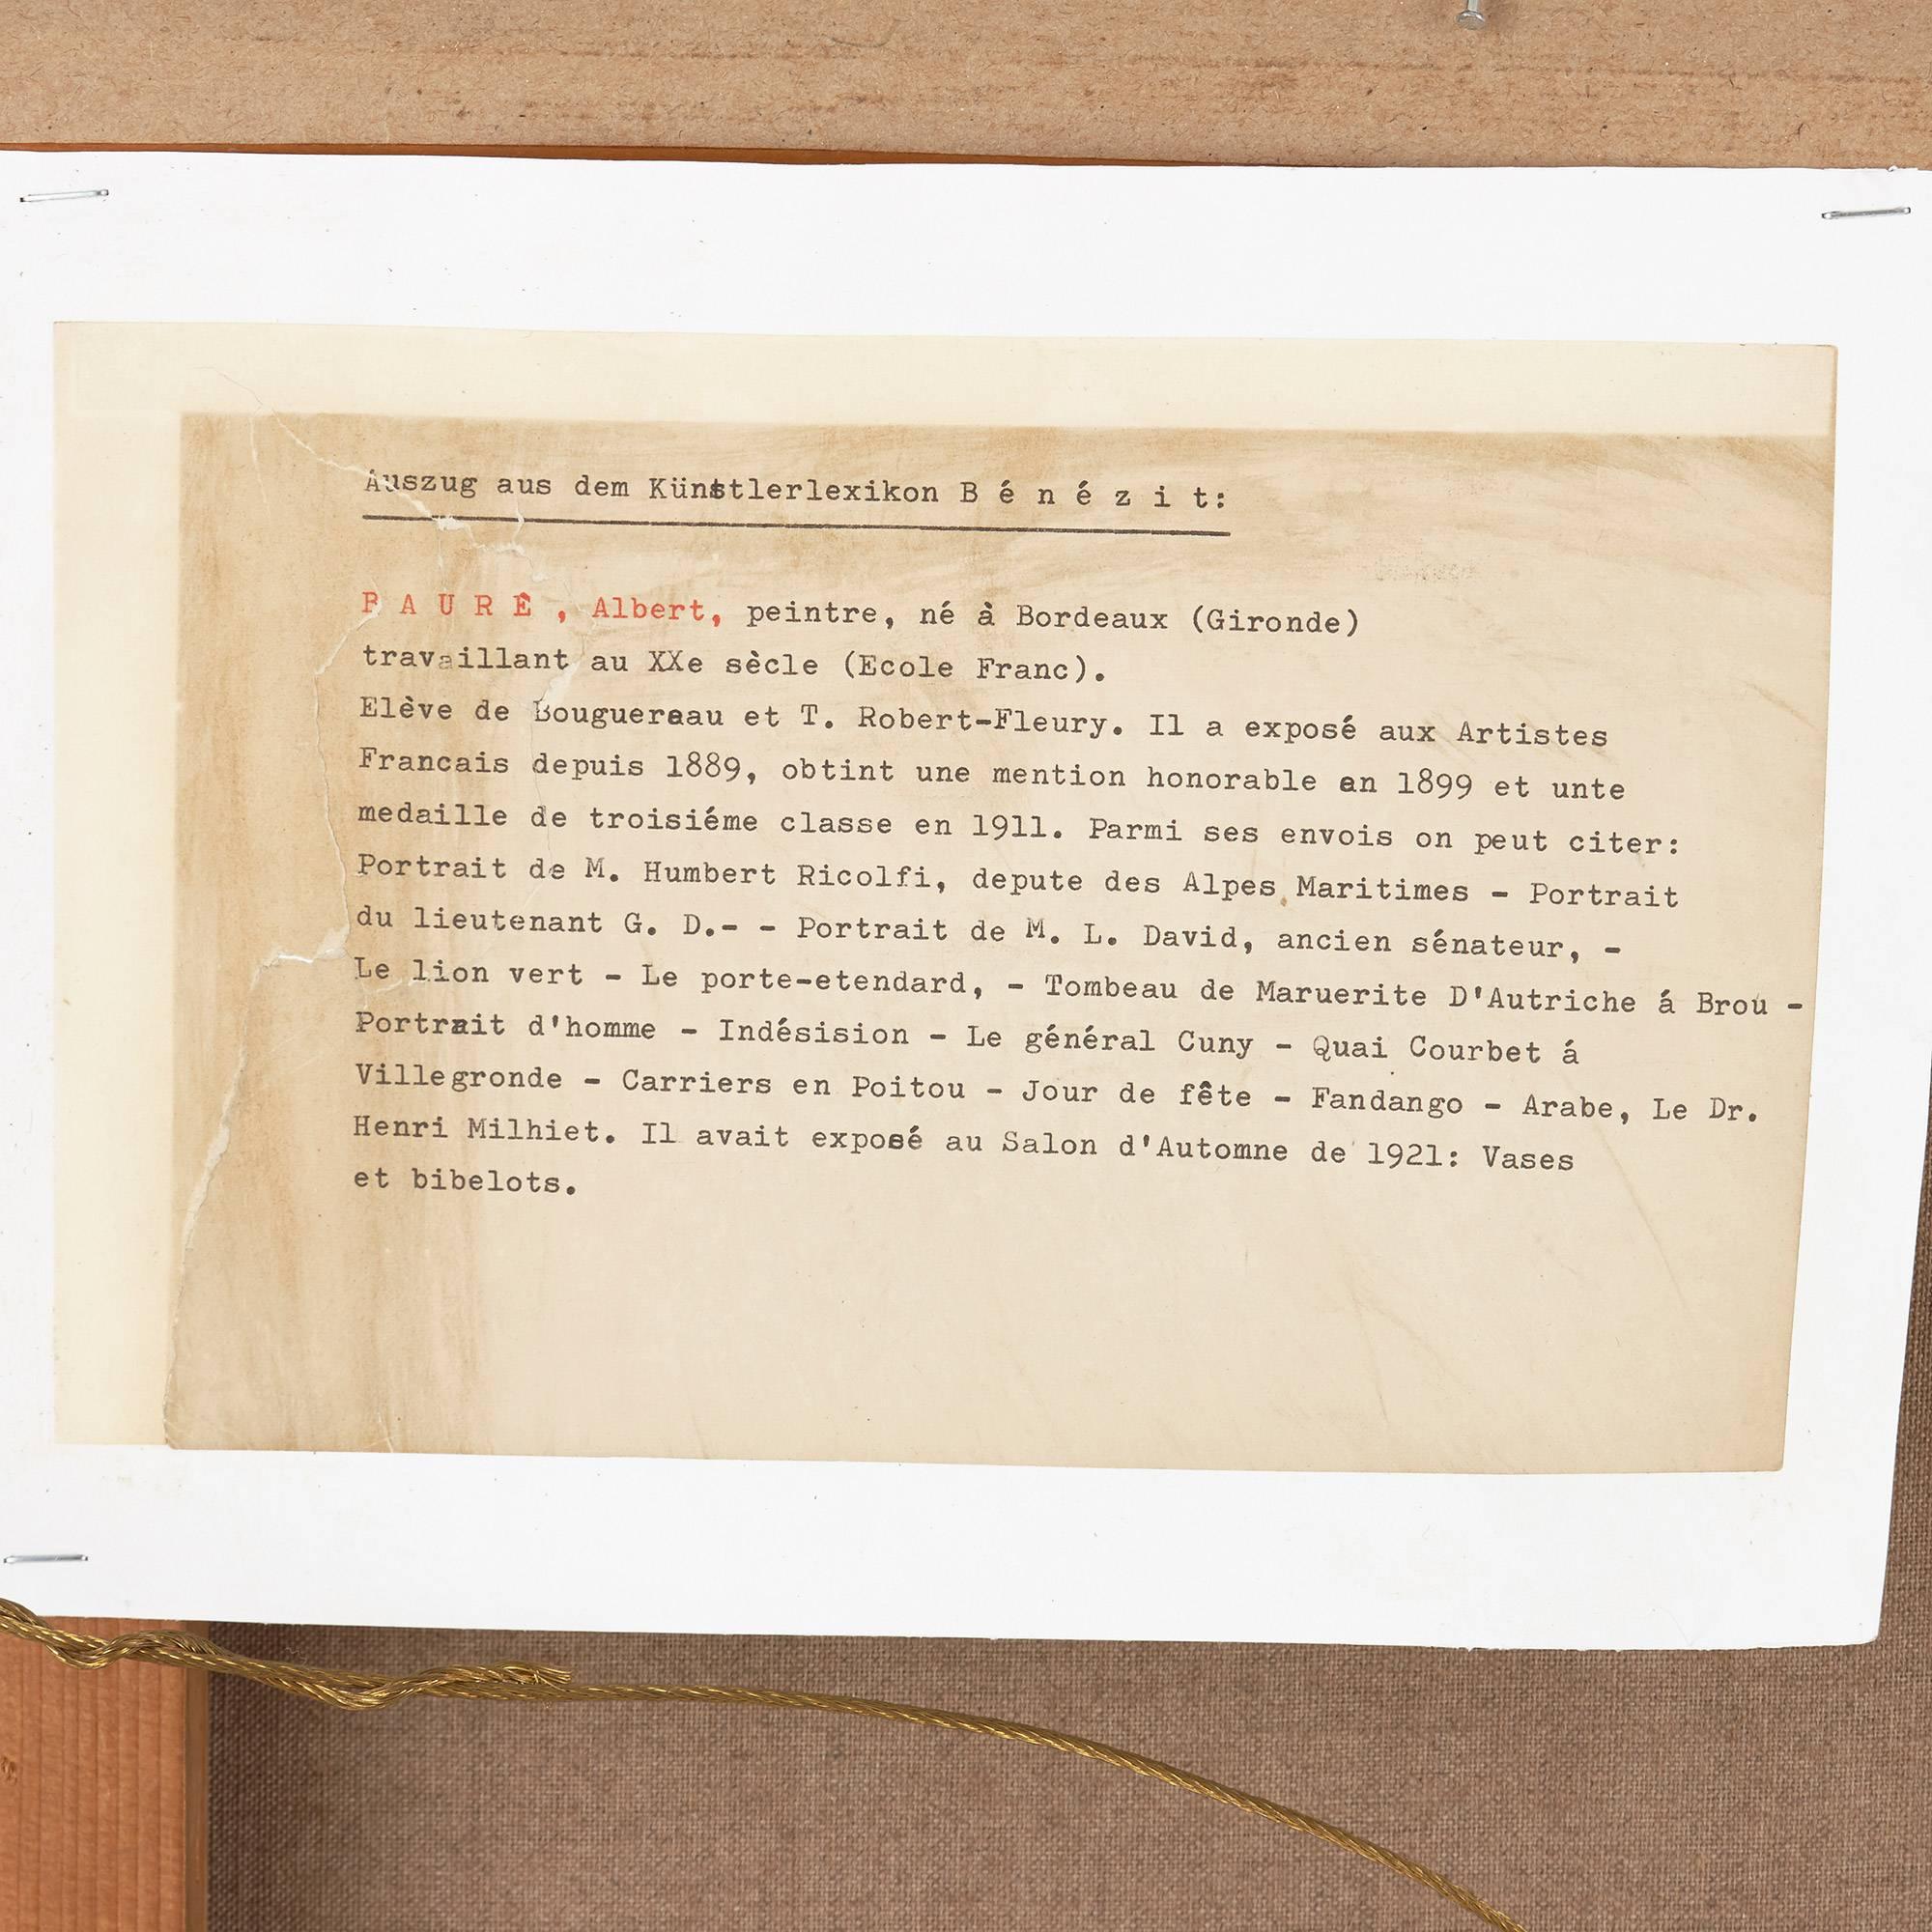 Auszug aus dem Künstlerlexikon B é n é z i t:
F A U R Ê , Albert, peintre, né à Bordeaux (Gironde)
travaillant au XXe sècle (Ecole Franc).
Elève de Bouguereau et T. Robert-Fleury. Il a exposé aux Artistes
Francais depuis 1889, obtint une mention honorable en 1899 et unte
medaille de troisiéme classe en 1911. Parmi ses envois on peut citer:
Portrait de M. Humbert Ricolfi, depute des Alpes Maritimes - Portrait
du lieutenant G. D.- - Portrait de M. L. David, ancien sénateur, -
Le lion vert - Le porte-etendard, - Tombeau de Maruerite D'Autriche á Brou -
Portrait d'homme - Indésision - Le général Cuny - Quai Courbet á
Villegronde - Carriers en Poitou - Jour de fête - Fandango - Arabe, Le Dr.
Henri Milhiet. Il avait exposé au Salon d'Automne de 1921: Vases
et bibelots.